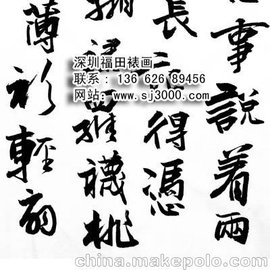 事說着雨
長得憑
襪桃
薄衫輕
深圳福田裱画
联系： 136 626 89456
网站：www.sj3000.com
china.makepolo.com